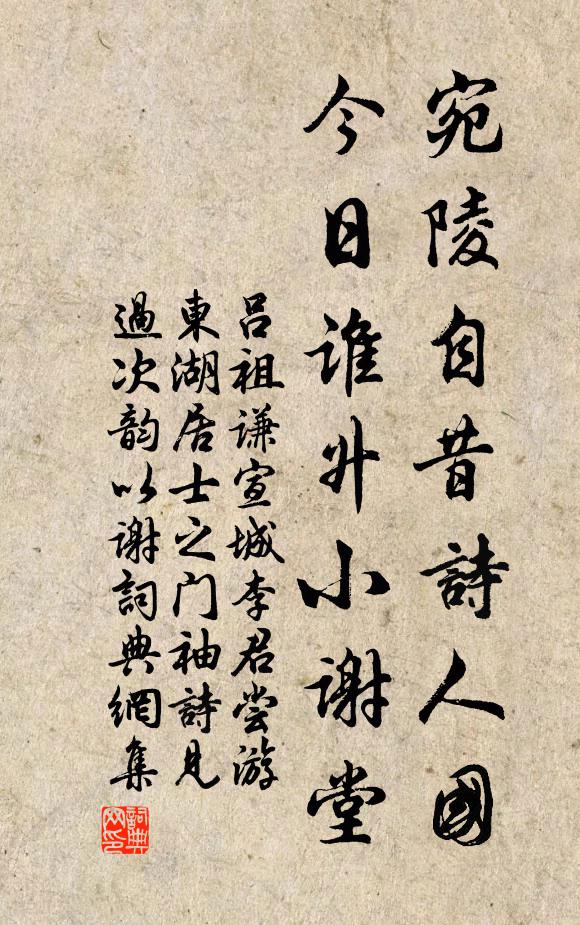 宛陵自昔詩人國
今日誰升小謝堂
吕祖謙宣城李君尝游
東湖居士之门袖詩見
過次韵以谢詞典網集
詞典
网印